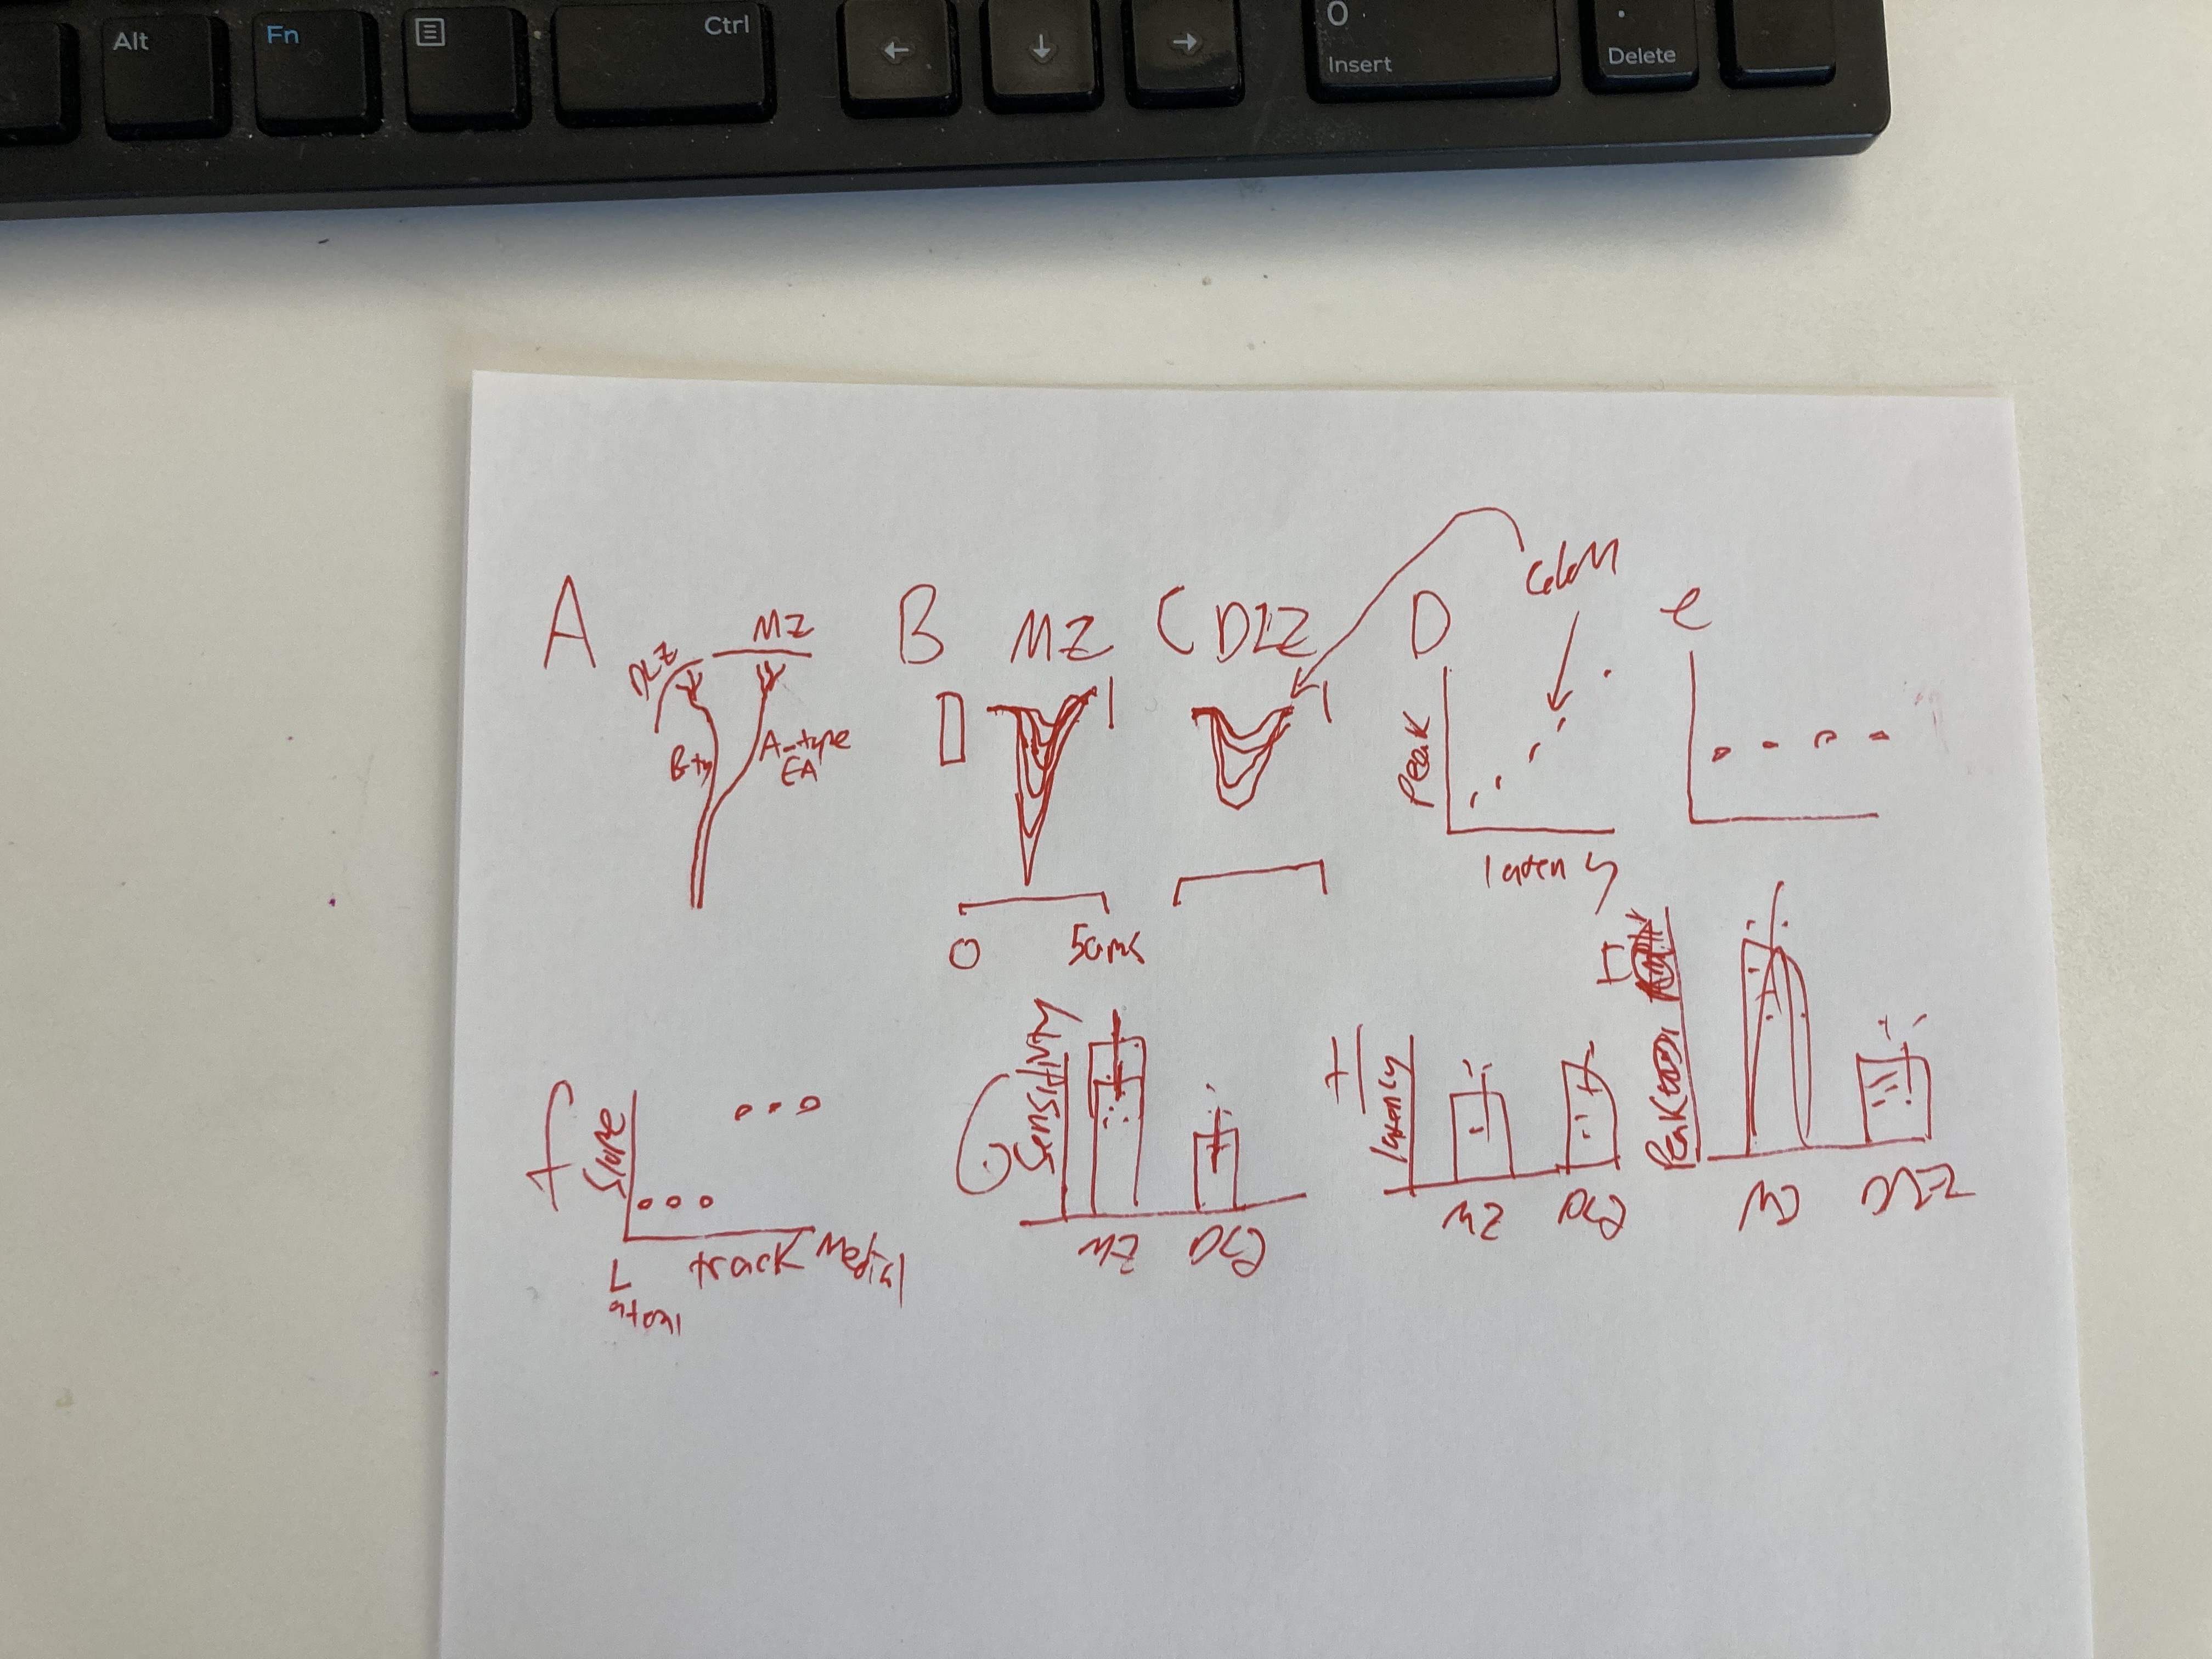 Alt
Fn
Ctrl
←
↓
→
0
Insert
.
Delete
A
DLZ
MZ
A-type
EA
B
MZ
0
50ms
C
DLZ
D
Peak
latency
e
f
Slope
Lateral
track
Medial
G
Sensitivity
MZ
DLZ
H
latency
MZ
DLZ
I
Peak
DLZ